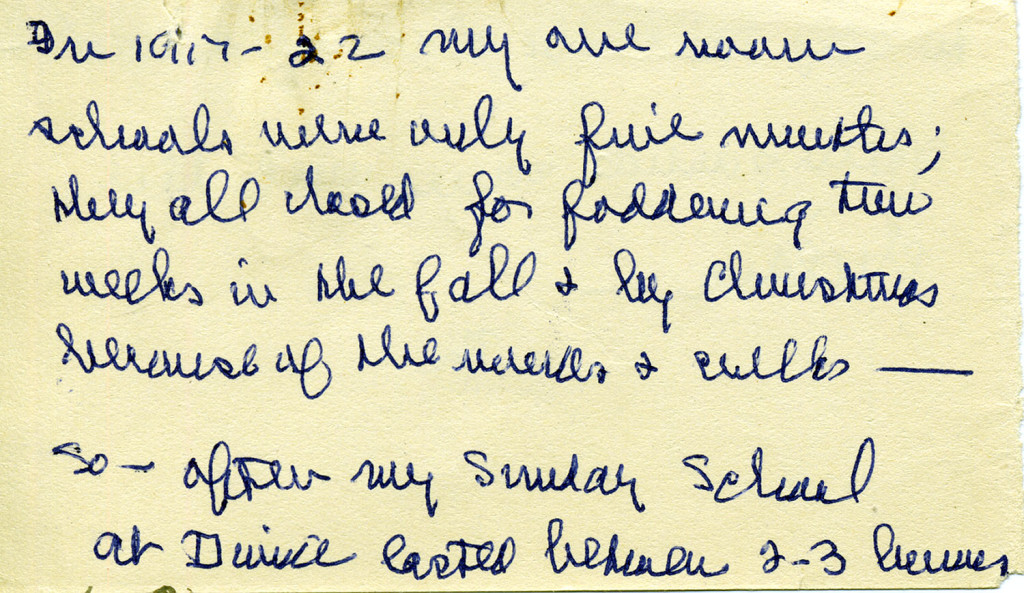 In 1917-22 my one room
schools were only five months;
they all closed for foddering two
weeks in the fall & by Christmas
because of the & creeks —
So - often my Sunday School
at lasted between 2-3 hours